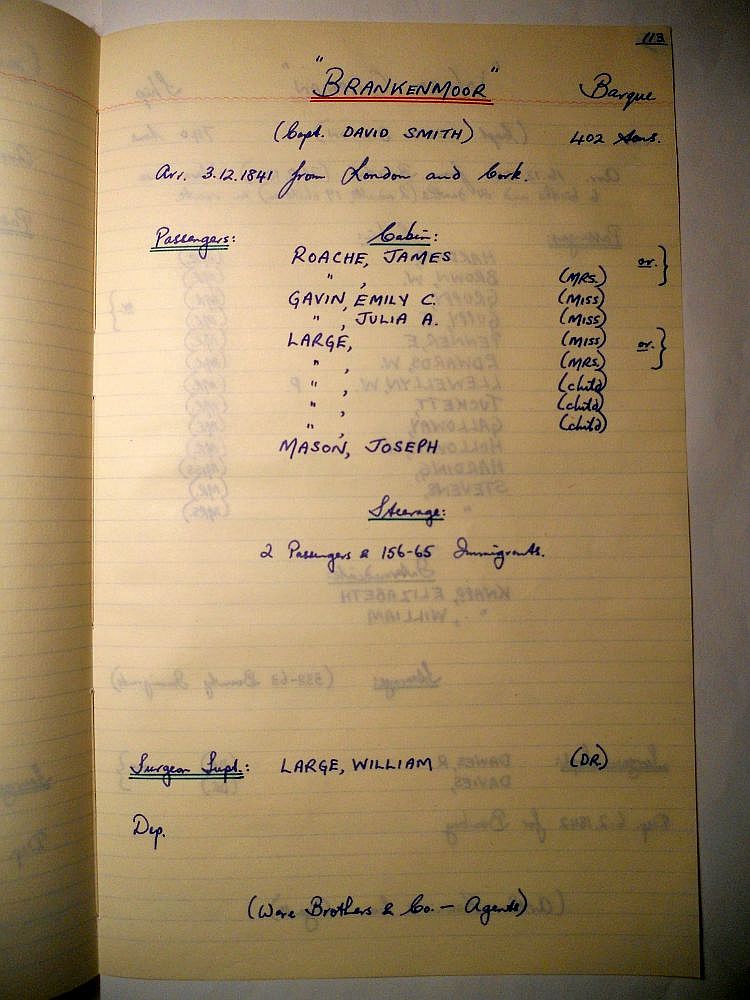 113
"BRANKENMOOR" Barque
(Capt. DAVID SMITH) 402 tons.
Arr. 3.12.1841 from London and Cork.
Passengers: Cabin:
ROACHE, JAMES or. }
" , (MRS.)
GAVIN, EMILY C. (MISS)
" , JULIA A. (MISS)
LARGE, (MISS) or. }
" , (MRS.)
" , (child)
" , (child)
" , (child)
MASON, JOSEPH
Steerage:
2 Passengers & 156-65 Immigrants.
Surgeon Supt.: LARGE, WILLIAM (DR.)
Dep.
(Ware Brothers & Co. - Agents)